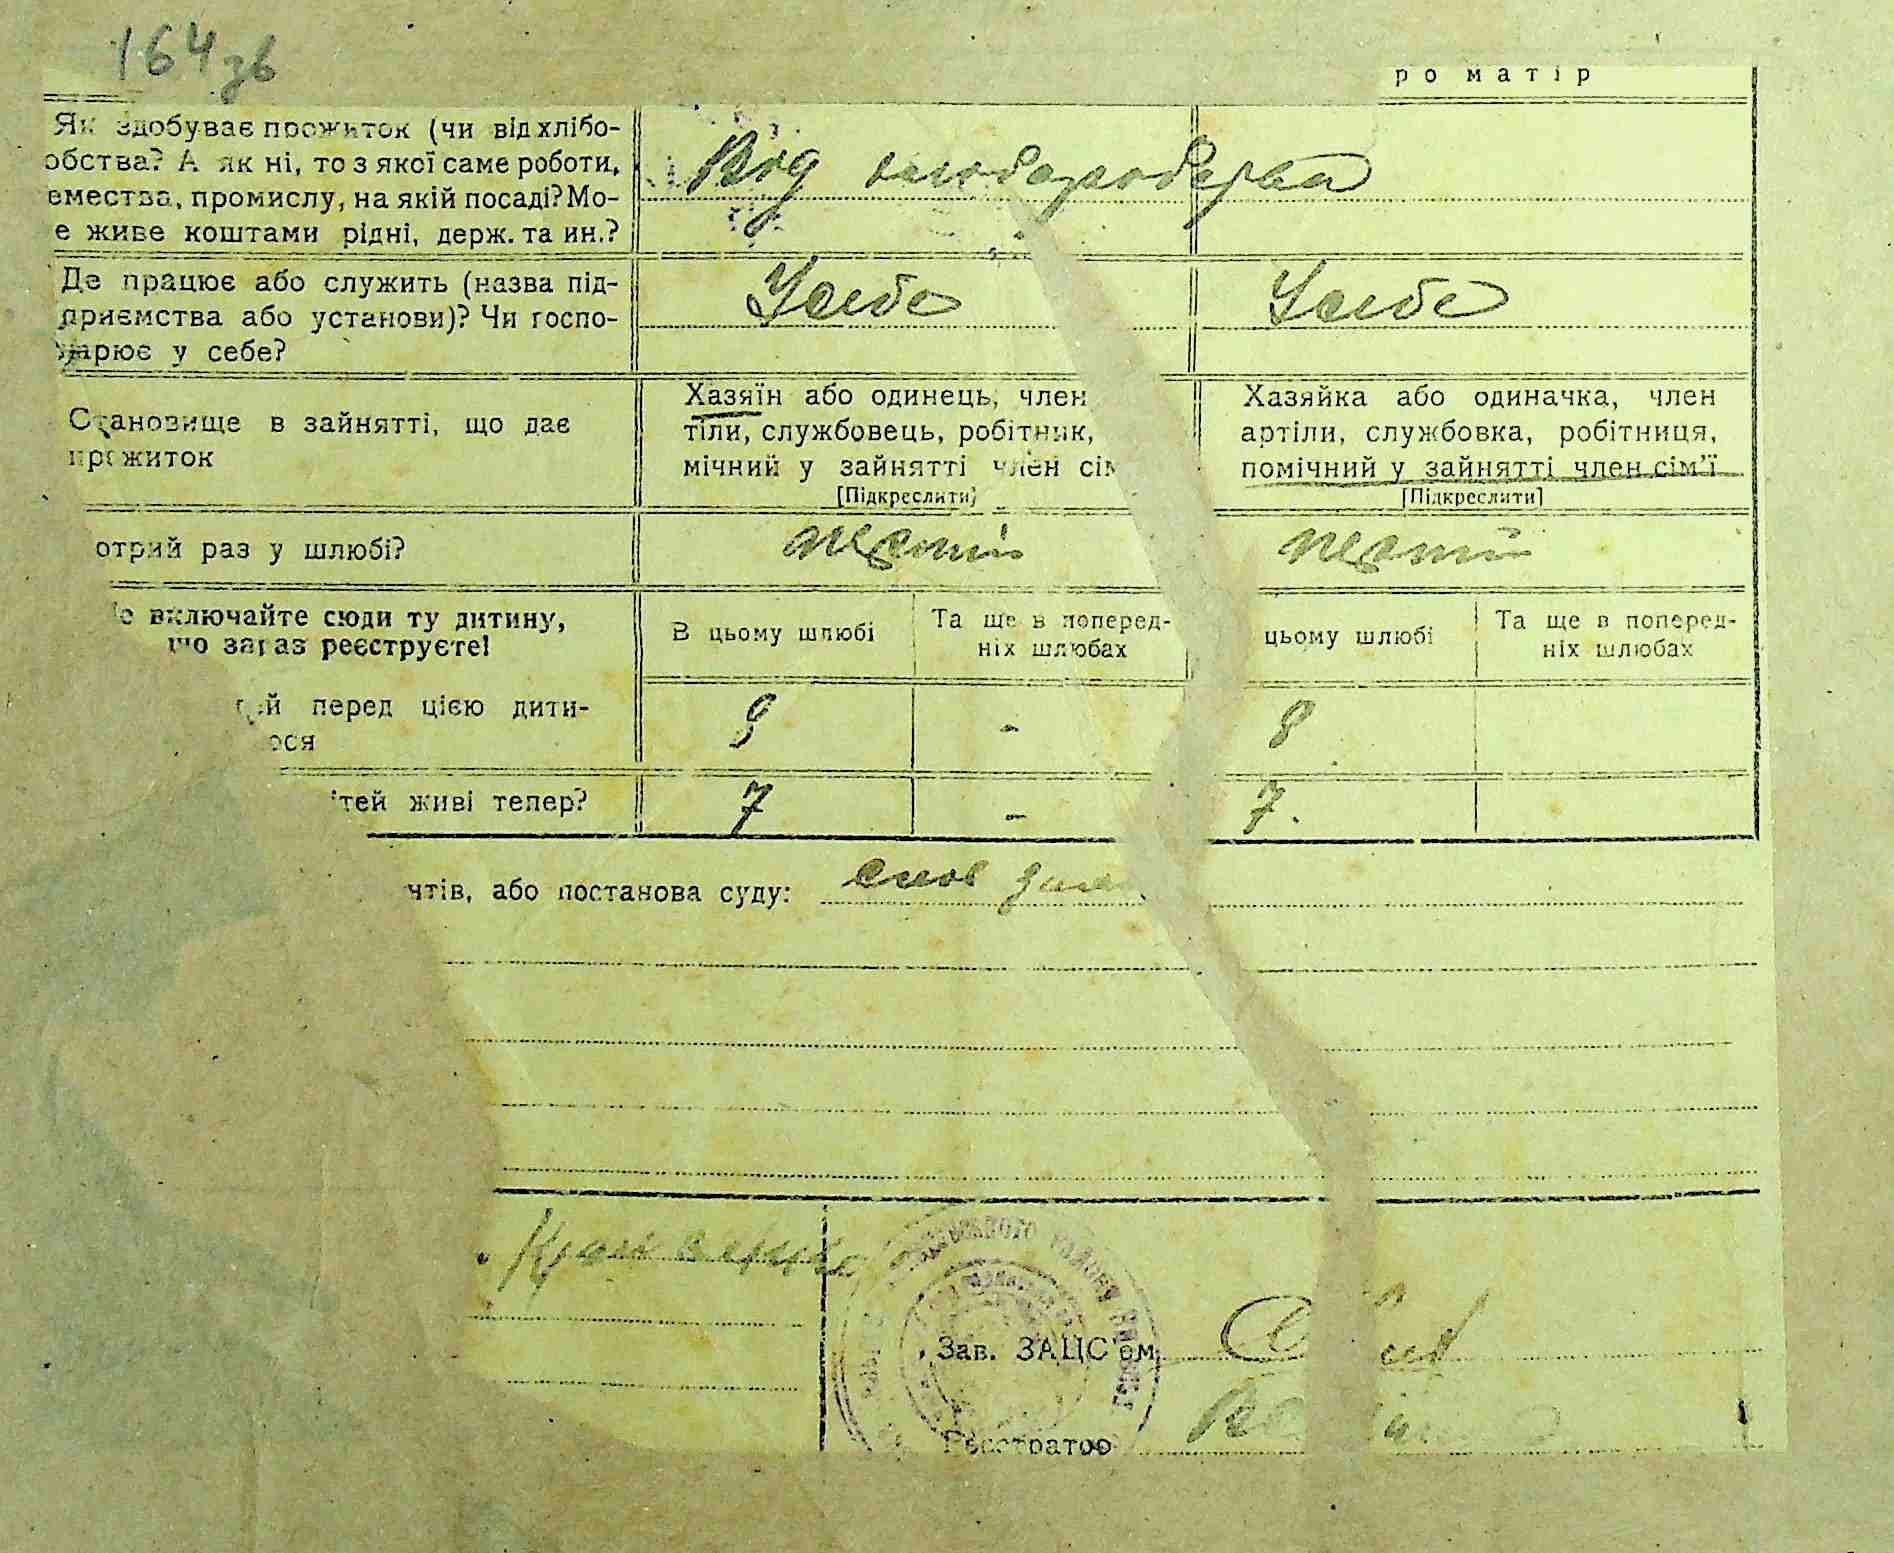 164зв
ро матір
Як здобуває прожиток (чи від хлібо-
обства? А як ні, то з якої саме роботи,
емества, промислу, на якій посаді? Мо-
е живе коштами рідні, держ. та ин.?
Від
Де працює або служить (назва під-
приємства або установи)? Чи госпо-
дарює у себе?
У себе
У себе
Становище в зайнятті, що дає
прожиток
Хазяїн або одинець, член
тіли, службовець, робітник,
мічний у зайнятті член сім
[Підкреслити]
Хазяйка або одиначка, член
артіли, службовка, робітниця,
помічний у зайнятті член сім'ї
[Підкреслити]
отрий раз у шлюбі?
перший
перший
е включайте сюди ту дитину,
що зараз реєструєте!
В цьому шлюбі
Та ще в поперед-
ніх шлюбах
цьому шлюбі
Та ще в поперед-
ніх шлюбах
й перед цією дити-
ося
8
-
8
тей живі тепер?
7
-
7.
нтів, або постанова суду:
Зав. ЗАЦС'ом
Реєстратор